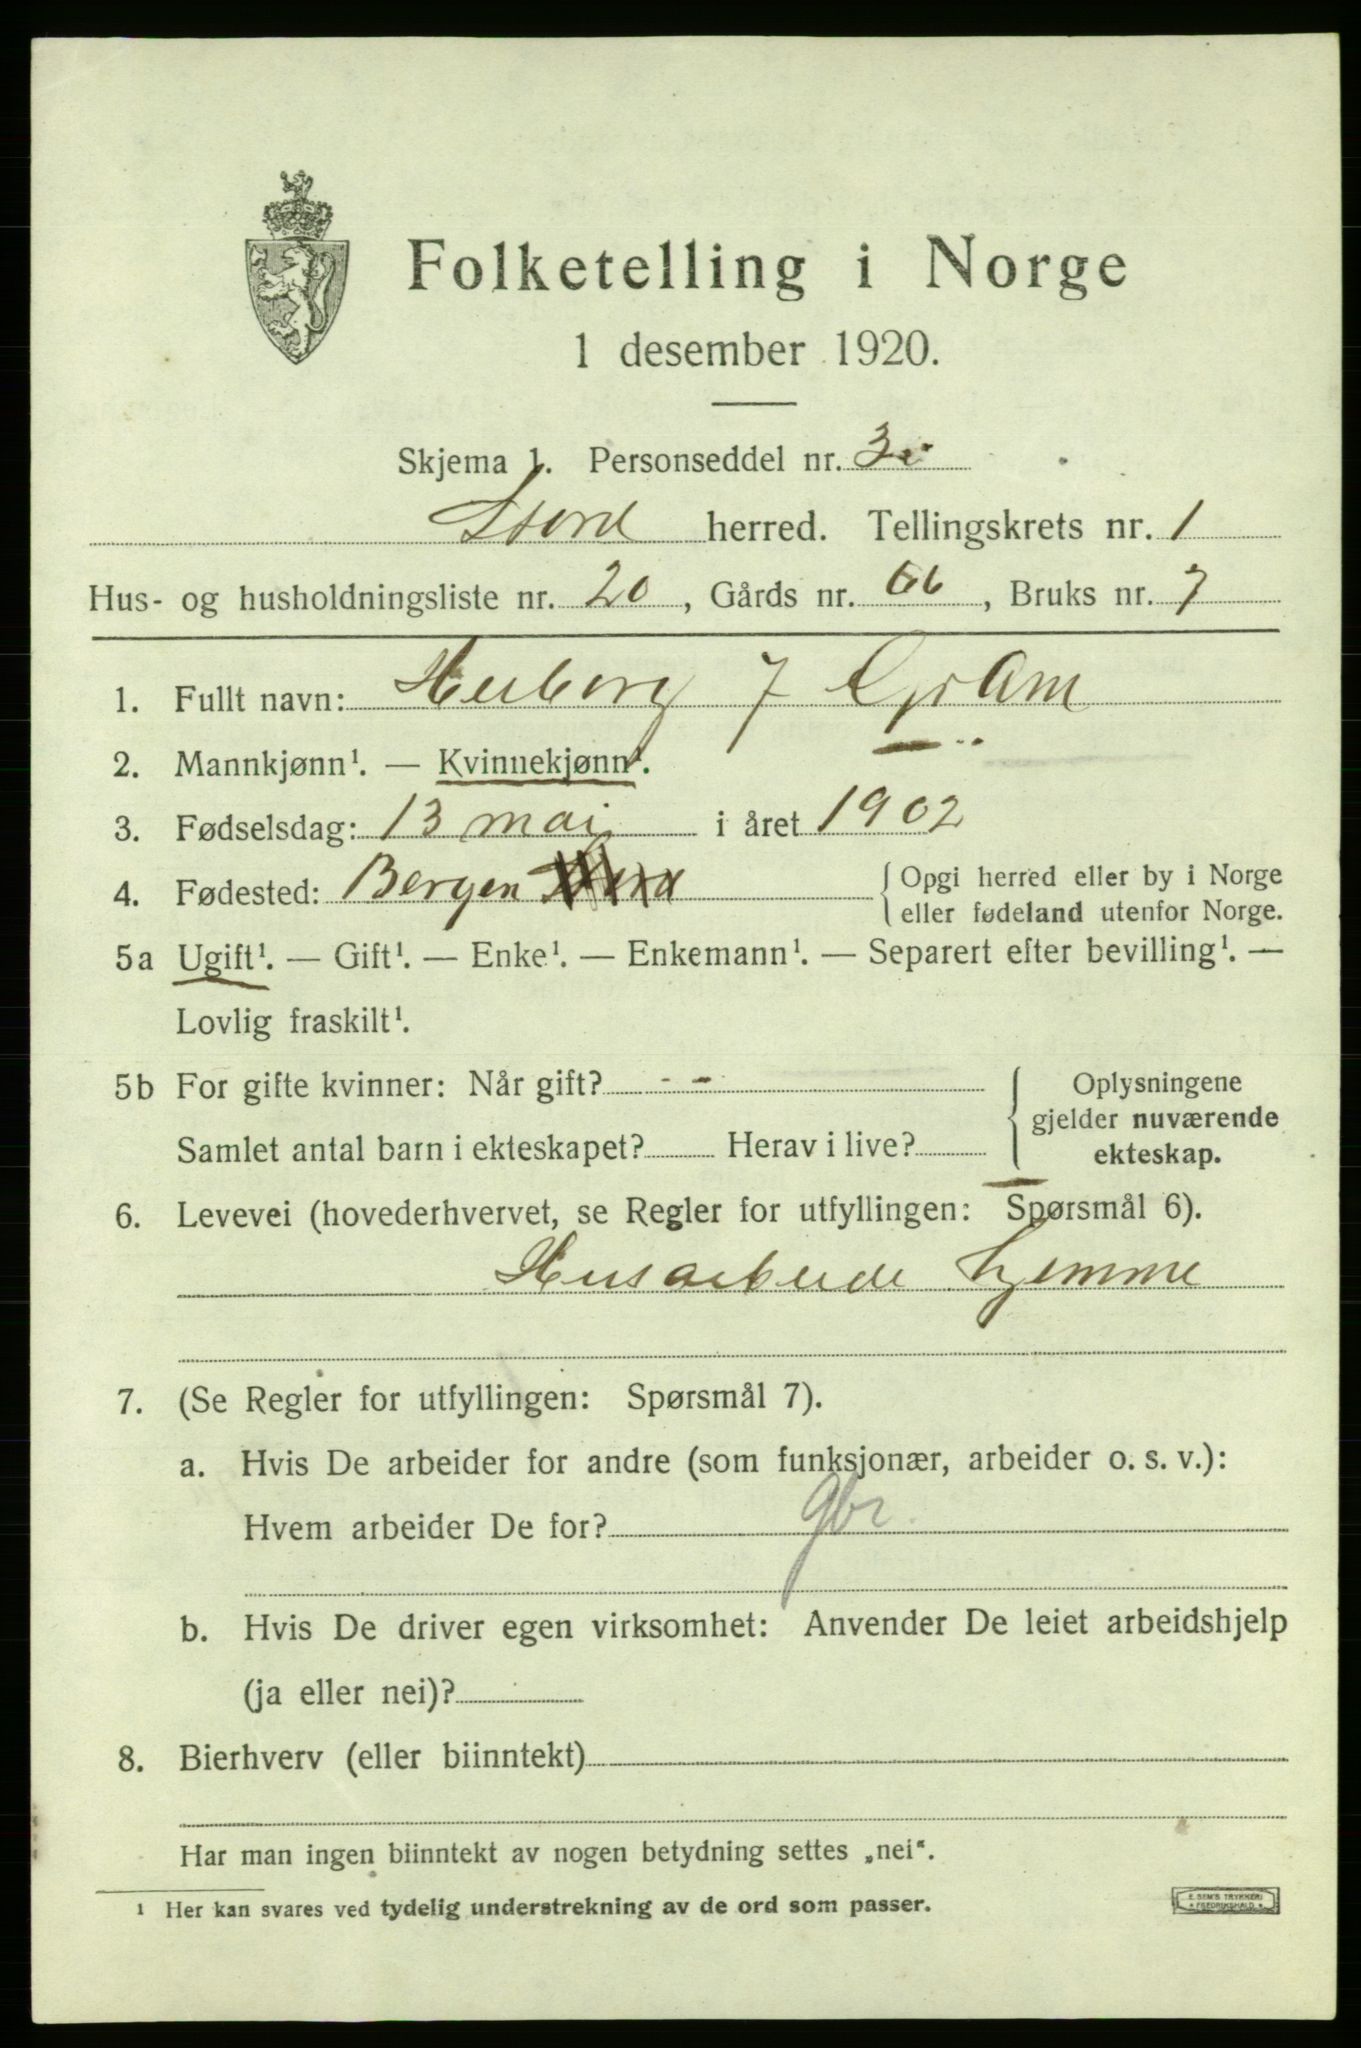 Folketelling i Norge
1 desember 1920.
Skjema 1. Personseddel nr. 3
Stord herred. Tellingskrets nr. 1
Hus- og husholdningsliste nr. 20, Gårds nr. 66, Bruks nr. 7
1. Fullt navn: Herborg J Gram
2. Mannkjønn¹. — Kvinnekjønn¹.
3. Fødselsdag: 13 mai i året 1902
4. Fødested: Bergen Stord { Opgi herred eller by i Norge
eller fødeland utenfor Norge.
5a Ugift¹. — Gift¹. — Enke¹. — Enkemann¹. — Separert efter bevilling¹. —
Lovlig fraskilt¹.
5b For gifte kvinner: Når gift? - - { Oplysningene
gjelder nuværende
Samlet antal barn i ekteskapet? Herav i live?
ekteskap.
6. Levevei (hovederhvervet, se Regler for utfyllingen: Spørsmål 6).
Husarbeide hjemme
7. (Se Regler for utfyllingen: Spørsmål 7).
a. Hvis De arbeider for andre (som funksjonær, arbeider o. s. v.):
Hvem arbeider De for? gbr.
b. Hvis De driver egen virksomhet: Anvender De leiet arbeidshjelp
(ja eller nei)?
8. Bierhverv (eller biinntekt)
Har man ingen biinntekt av nogen betydning settes „nei“.
¹ Her kan svares ved tydelig understrekning av de ord som passer.
E. SEM'S TRYKKERI
FREDRIKSHALD